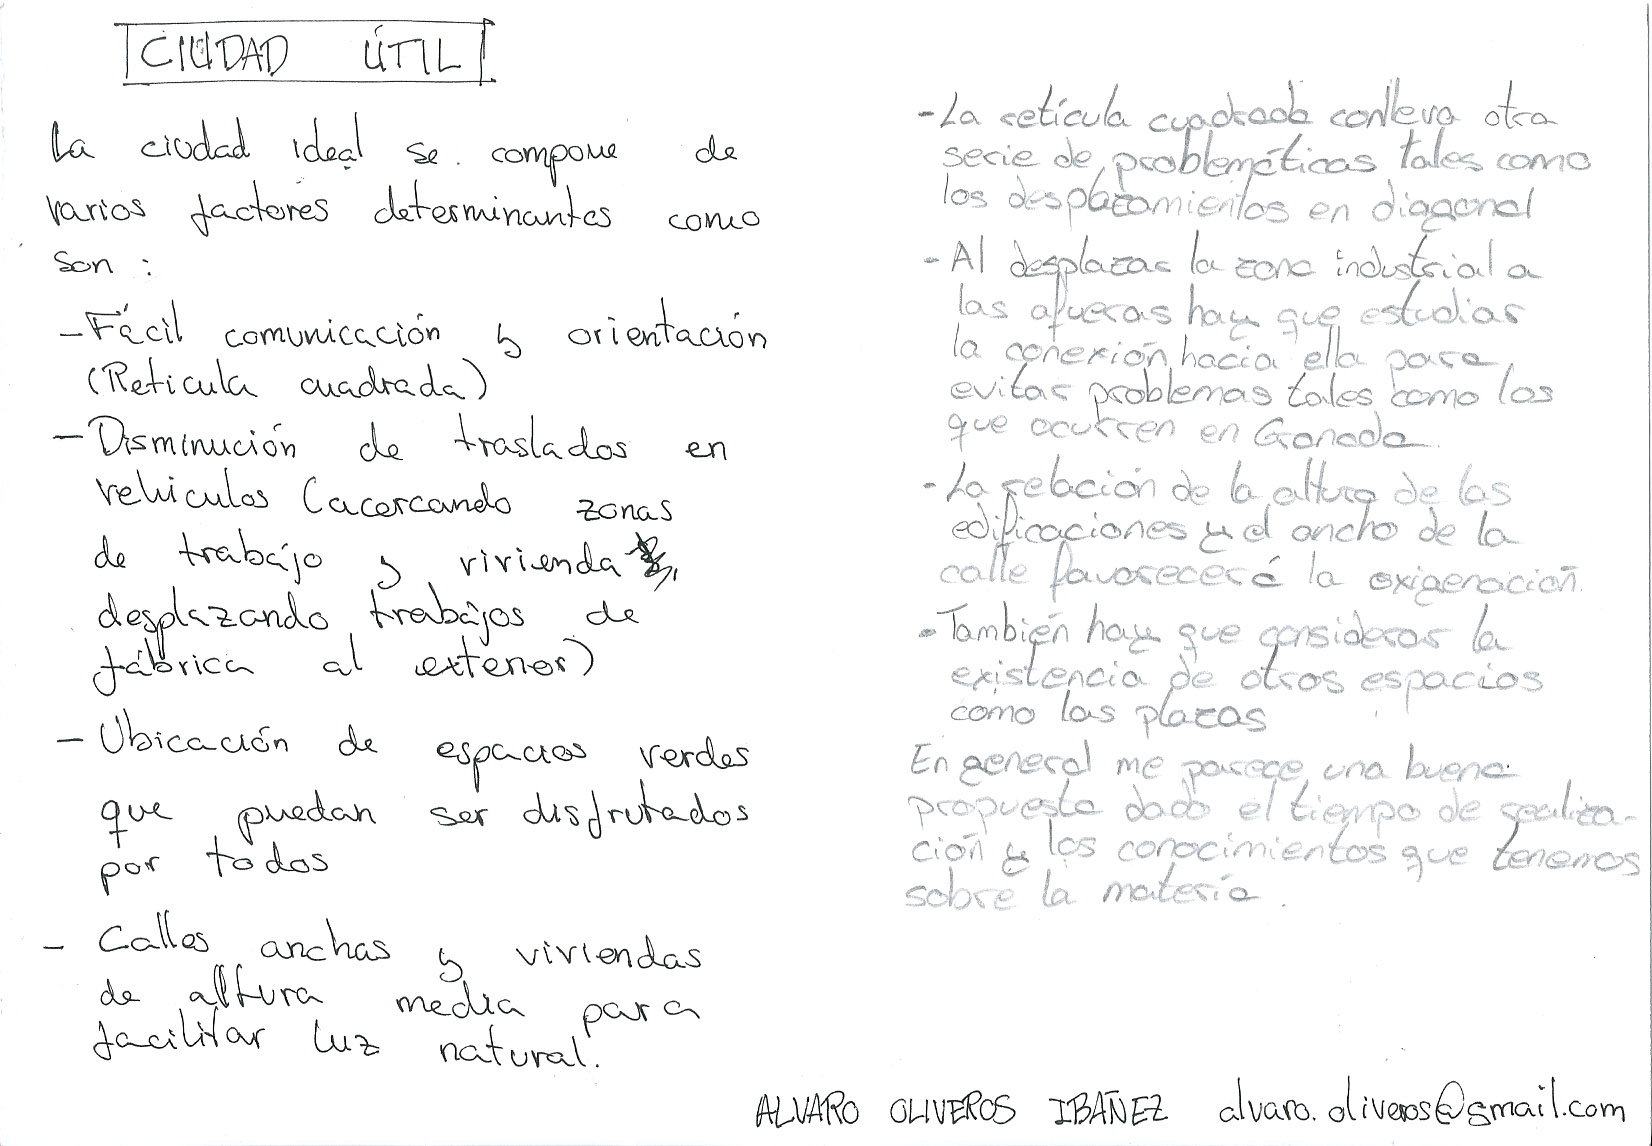 CIUDAD ÚTIL
La ciudad ideal se compone de
varios factores determinantes como
son :
- Fácil comunicación y orientación
(Reticula cuadrada)
- Disminución de traslados en
vehiculos (acercando zonas
de trabajo y vivienda,
desplazando trabajos de
fábrica al exterior)
- Ubicación de espacios verdes
que puedan ser disfrutados
por todos
- Calles anchas y viviendas
de altura media para
facilitar luz natural.
- La retícula cuadrada conlleva otra
serie de problemáticas tales como
los desplazamientos en diagonal
- Al desplazar la zona industrial a
las afueras hay que estudiar
la conexión hacia ella para
evitar problemas tales como los
que ocurren en Granada.
- La relación de la altura de las
edificaciones y el ancho de la
calle favorecerá la oxigenación.
- También hay que considerar la
existencia de otros espacios
como las plazas
En general me parece una buena
propuesta dado el tiempo de realiza-
ción y los conocimientos que tenemos
sobre la materia.
ALVARO OLIVEROS IBAÑEZ alvaro.oliveros@gmail.com